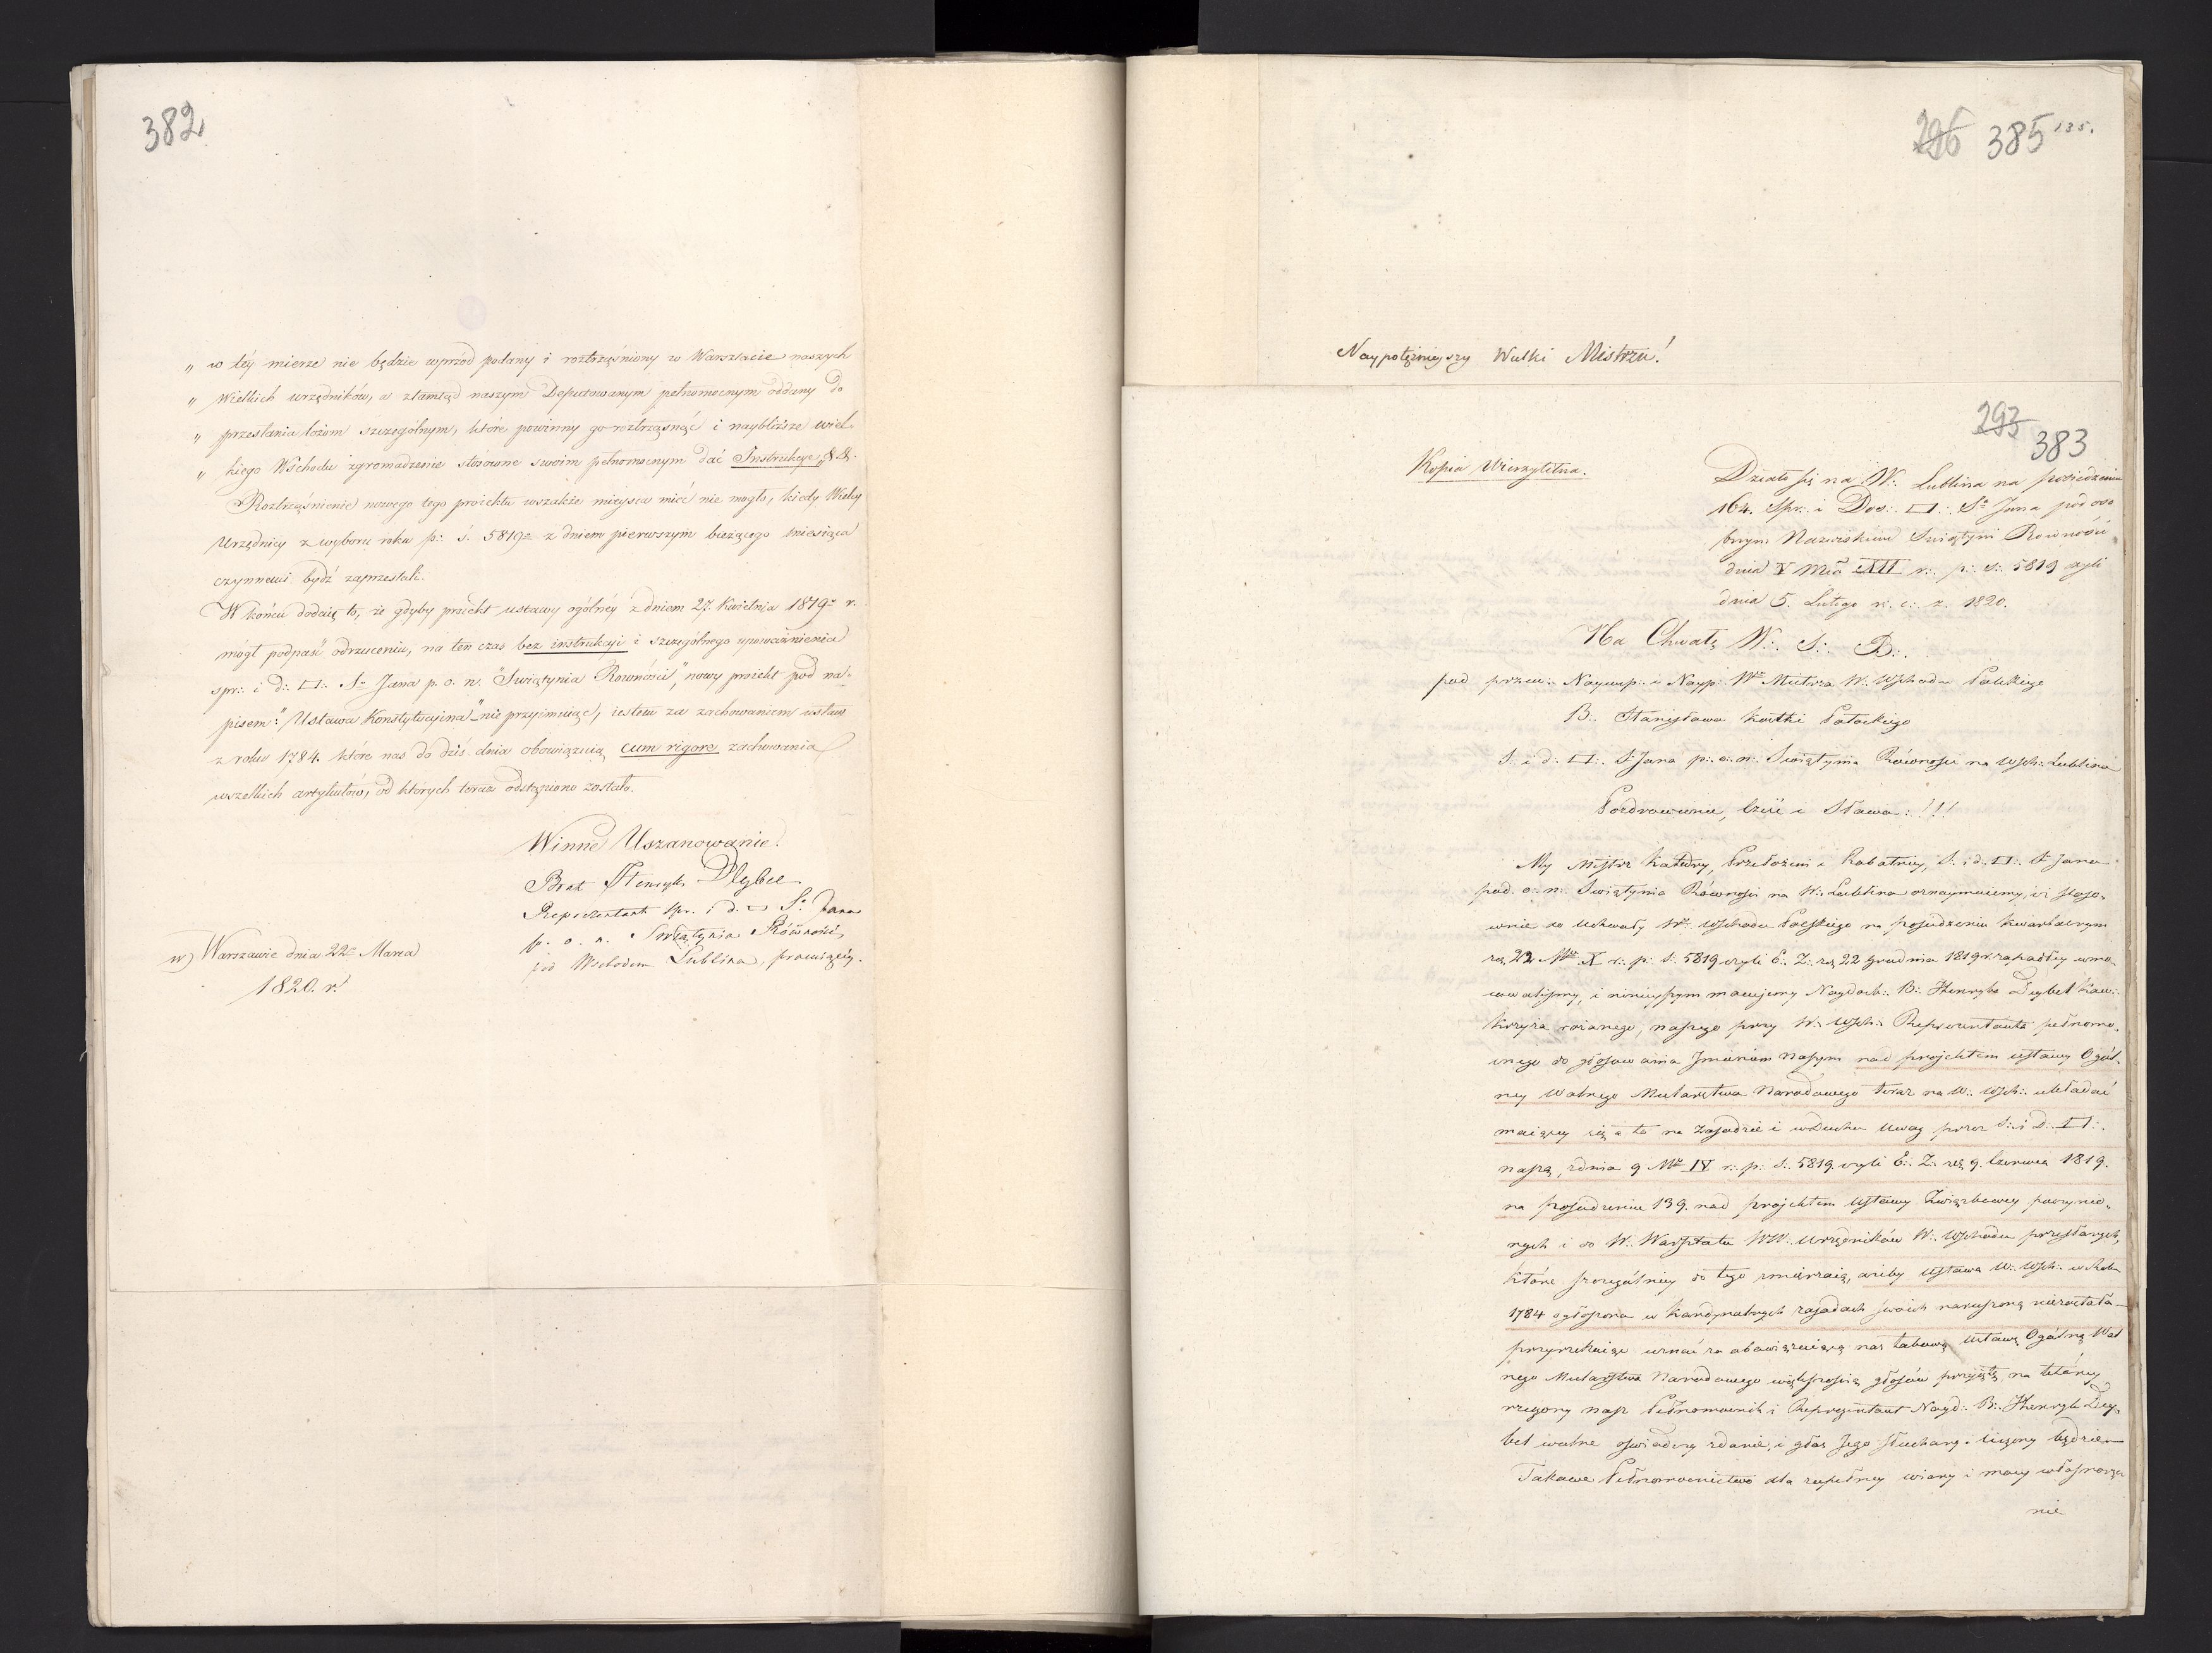 382
„ w téy mierze nie będzie wprzód podany i roztrząśniony w Warsztacie naszych
„ Wielkich urzędników, a ztamtąd naszym Deputowanym pełnomocnym oddany do
„ przesłania lożom szczególnym, które powinny go roztrząsnąć i naybliższe wiel-
„ kiego Wschodu zgromadzenie stosowne swoim pełnomocnym dać Instrukcye,
Roztrząśnienie nowego tego proiektu wszakże mieysca mieć nie mogło, kiedy Wielcy
Urzędnicy z wyboru roku p: ś. 5819º z dniem pierwszym bieżącego miesiąca
czynnemi bydź zaprzestali.
W końcu dodaię to, że gdyby proiekt ustawy ogólnéy z dniem 27. Kwietnia 1819º r.
mógł podpaść odrzuceniu, na ten czas bez instrukcyi i szczególnego upoważnienia
spr: i d: □: Sº Jana p. o. n. "Swiątynia Równości", nowy proiekt pod na-
pisem: "Ustawa Konstytucyina" nie przyimuiąc, iestem za zachowaniem ustaw
z roku 1784. które nas do dziś dnia obowiązuią cum rigore zachowania
wszelkich artykułów, od których teraz odstąpiono zostało.
Winne Uszanowanie!
Brat Henryk Dybel
Reprezentant spr. i d. □ Sº Jana
p. o. n. Swiątynia Równości,
pod Wschodem Lublina, pracuiącéy.
w) Warszawie dnia 22º Marca
1820. r.
296 385 185.
Naypotężnieyszy Wielki Mistrzu!
293
383
Kopia Wierzytelna.
Działo się na W:. Lublina na posiedzeniu
164. Spr: i Dos: □: Sº Jana pod oso
bnym Nazwiskiem Swiątyni Równości
dnia V Mca XII r:. p:. s:. 5819 czyli
dnia 5. Lutego r:. e:. z. 1820.
Na Chwałę W:. S:. B:.
pod przew: Naywp: i Nayp: Wº Mistrza W:. Wschodu Polskiego
B:. Stanisława Kostki Potockiego
S:. i d:. □:. S Jana p:. o:. n:. Swiątynia Równości na Wsch:. Lublina
Pozdrowienie, Cześć i Sława:!!!
My Mistrz Katedry, Przełożeni i Robotnicy, S:. i d:. □:. S Jana
pod. o:. n:. Swiątynia Równości na W:. Lublina oznaymuiemy, iż stoso-
wnie do Uchwały Wº Wschodu Polskiego na posiedzeniu kwartalnym
22 Mca X r:. p:. s:. 5819 czyli E:. Z:. 22 Grudnia 1819 r. zapadłey umo-
cowaliśmy, i ninieyszym mocujemy Naydosk:. B:. Henryka Dybel Kaw:.
Krzyża rożanego, naszego przy W:. Wsch:. Reprezentanta pełnomo-
cnego do głosowania Imieniem Naszym nad projektem ustawy Ogól-
ney Wolnego Mularstwa Narodowego teraz na W:. Wsch:. układać
maiącey się a to na Zasadzie i w Duchu Uwag przez S:. i D:. □:.
naszą, z dnia 9 Mca IV r:. p:. s:. 5819 czyli E:. Z:. 9. Czerwca 1819.
na posiedzeniu 139. nad projektem Ustawy Związkowey poczynio-
nych i do W:. Warsztatu WW:. Urzędników W:. Wschodu przesłanych,
które szczególniey do tego zmierzaią, ażeby Ustawa W:. Wsch:. w Roku
1784 ogłoszona w kardynalnych zasadach swoich naruszoną niezostała
przyrzekaiąc uznać za obowiązuiącą nas takową Ustawę Ogólną Wol
nego Mularstwa Narodowego większością głosów przyiętą, na którey
rzeczony nasz Pełnomocnik i Reprezentant Nayd:. B:. Henryk Dy-
bel wolne oświadczy zdanie, i głos Jego słuchany i liczony będzie
Takowe Pełnomocnictwo dla zupełney wiary i mocy własnorę
nie